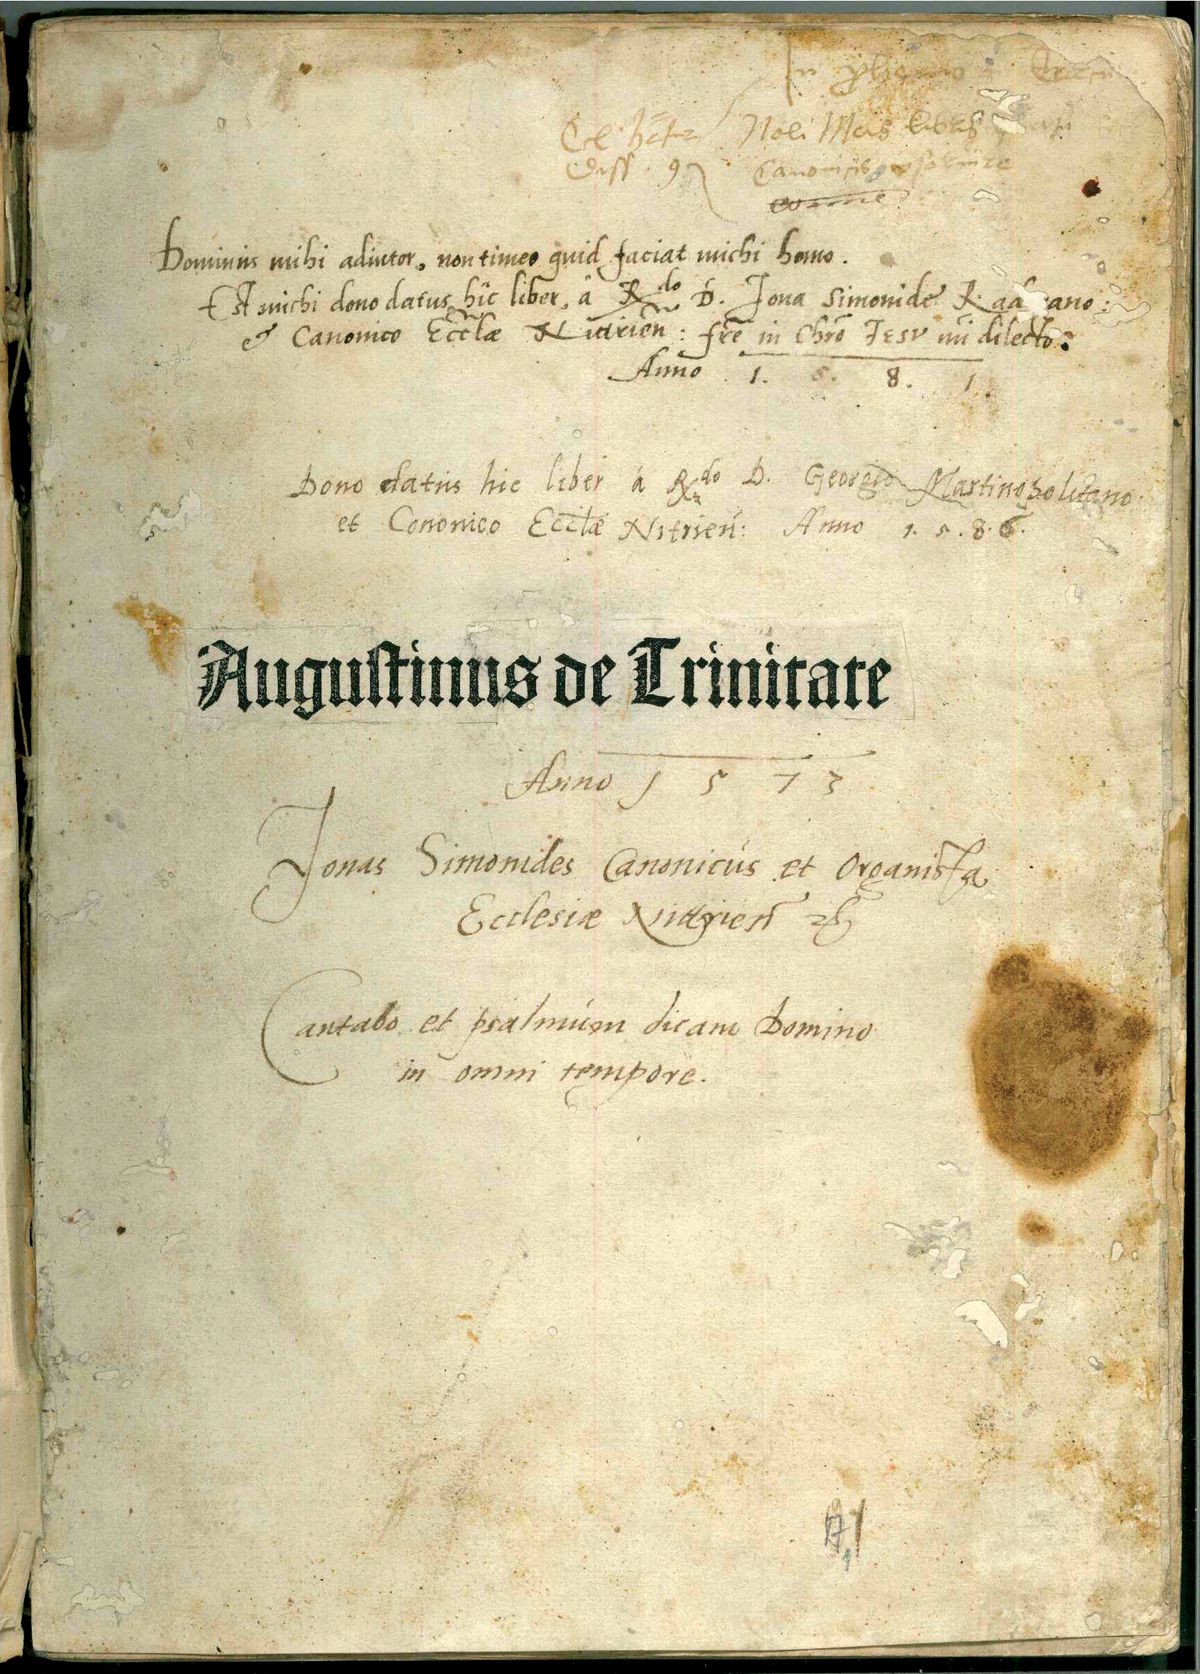 In
Noli Meis
diss. 9
Canonisis
Dominus mihi adiutor, non timeo quid faciat michi homo.
Est michi dono datus hic liber, a R.do D. Jona Simonide
& Canonico Eccłæ Nittrień: fr̃e in Chr̃o Jesu mi dilecto:
Anno 1. 5. 8. 1.
Dono datus hic liber á R.do D. Georgio Martinopolitano
et Cononico Eccłæ Nitrień: Anno 1. 5. 8. 6.
Auguſtinus de Trinitate
Anno 1 5 7 3
Jonas Simonides Canonicús et Organista
Ecclesiæ Nittrień
Cantabo et psalmúm dicam Domino
in omni tempore.